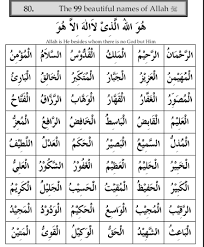 80. The 99 beautiful names of Allah ﷻ
هُوَ اللهُ الَّذِىْ لَآاِلٰهَ اِلَّا هُوَ
Allah is He besides whom there is no God but Him
الرَّحْمٰنُ الرَّحِيْمُ الْمَلِكُ الْقُدُّوْسُ السَّلَامُ الْمُؤْمِنُ
الْمُهَيْمِنُ الْعَزِيْزُ الْجَبَّارُ الْمُتَكَبِّرُ الْخَالِقُ الْبَارِئُ
الْمُصَوِّرُ الْغَفَّارُ الْقَهَّارُ الْوَهَّابُ الرَّزَّاقُ الْفَتَّاحُ
الْعَلِيْمُ الْقَابِضُ الْبَاسِطُ الْخَافِضُ الرَّافِعُ الْمُعِزُّ
الْمُذِلُّ السَّمِيْعُ الْبَصِيْرُ الْحَكَمُ الْعَدْلُ اللَّطِيْفُ
الْخَبِيْرُ الْحَلِيْمُ الْعَظِيْمُ الْغَفُوْرُ الشَّكُوْرُ الْعَلِيُّ
الْكَبِيْرُ الْحَفِيْظُ الْمُقِيْتُ الْحَسِيْبُ الْجَلِيْلُ الْكَرِيْمُ
الرَّقِيْبُ الْمُجِيْبُ الْوَاسِعُ الْحَكِيْمُ الْوَدُوْدُ الْمَجِيْدُ
الْبَاعِثُ الشَّهِيْدُ الْحَقُّ الْوَكِيْلُ الْقَوِيُّ الْمَتِيْنُ